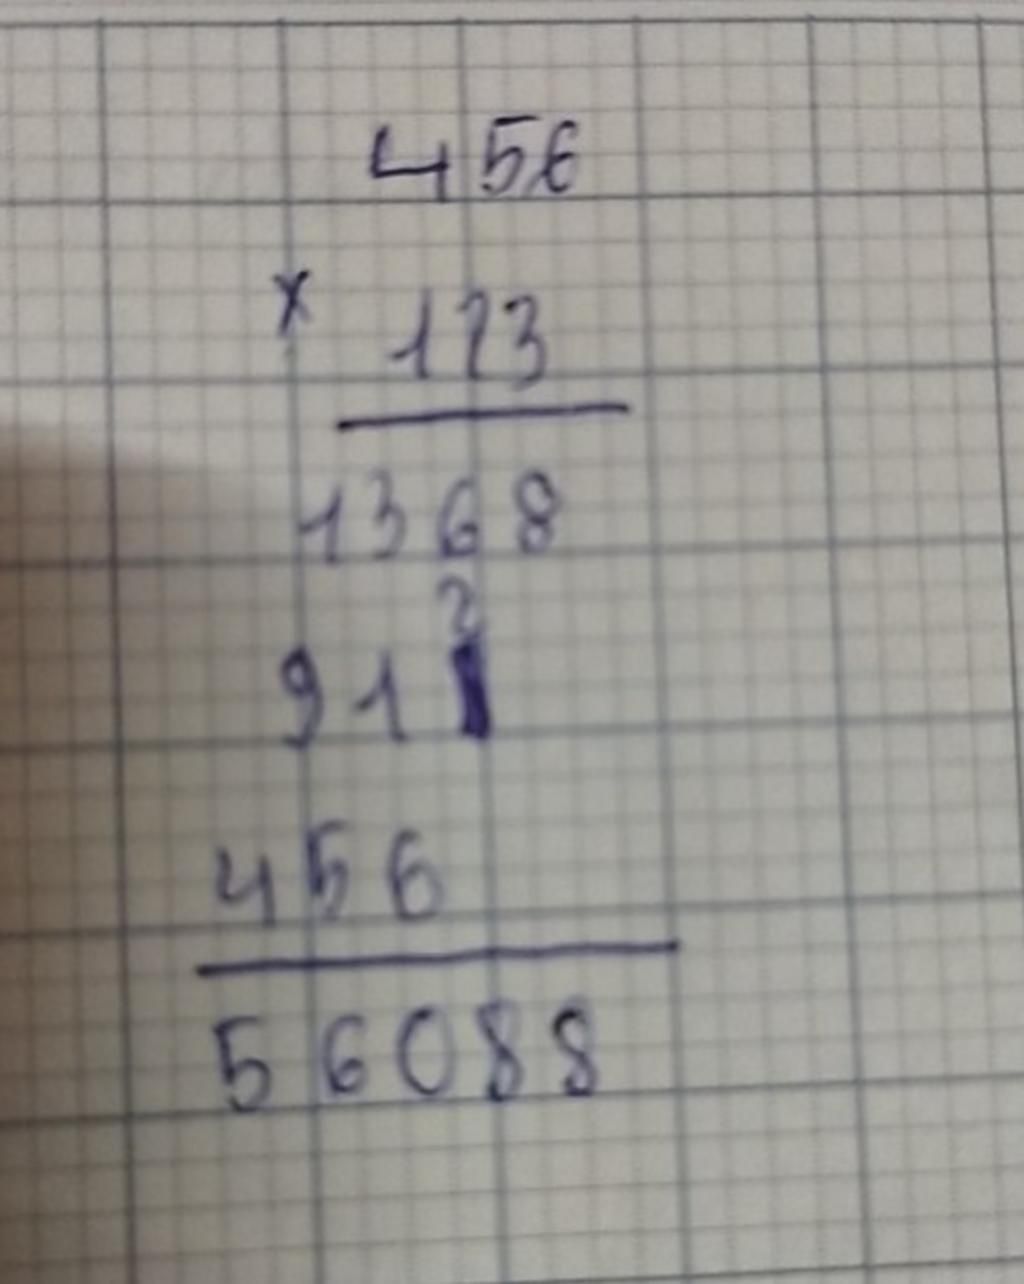 456
x 123
1368
912
456
56088